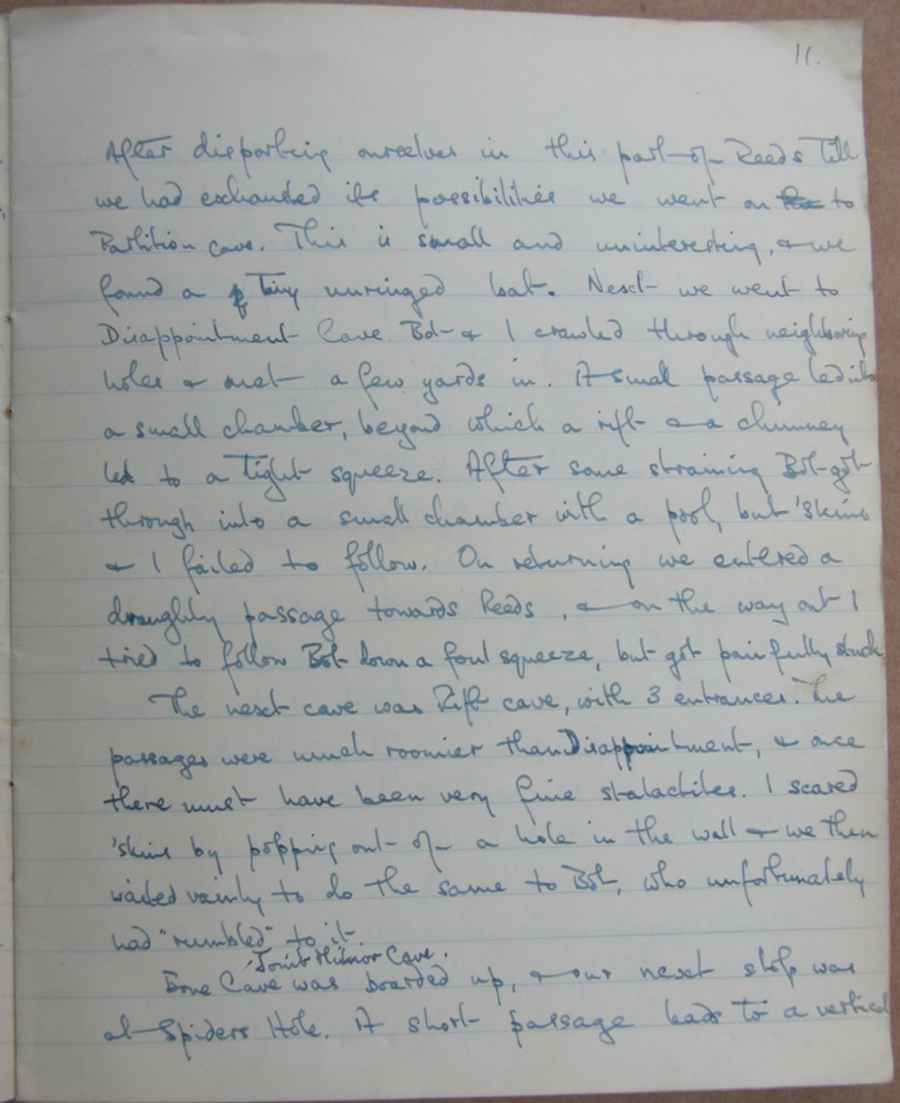 11.
After disporting ourselves in this part of Reeds till
we had exhausted its possibilities we went on to
Partition cave. This is small and uninteresting, & we
found a tiny unringed bat. Next we went to
Disappointment Cave. Bob & I crawled through neighbouring
holes & met a few yards in. A small passage led into
a small chamber, beyond which a rift & a chimney
led to a tight squeeze. After some straining Bob got
through into a small chamber with a pool, but 'skins
& I failed to follow. On returning we entered a
draughty passage towards Reeds, & on the way out I
tried to follow Bob down a foul squeeze, but got painfully stuck.
The next cave was Rift cave, with 3 entrances. The
passages were much roomier than Disappointment, & once
there must have been very fine stalactites. I scared
'skins by popping out of a hole in the wall & we then
waited vainly to do the same to Bob, who unfortunately
had "rumbled" to it.
Minor Cave.
Bone Cave was boarded up, & our next stop was
at Spiders Hole. A short passage leads to a vertical